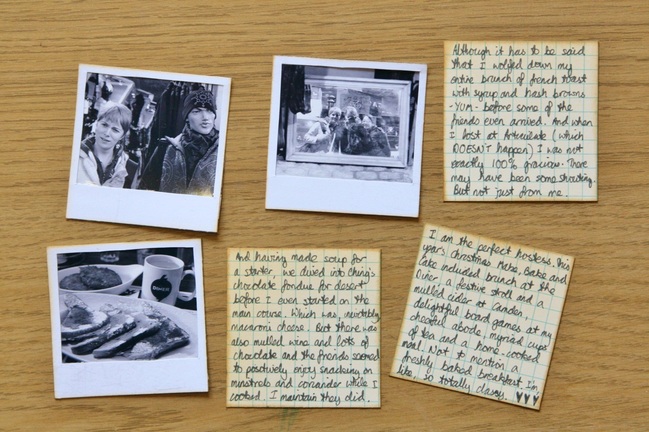 Although it has to be said
that I wolfed down my
entire brunch of french toast
with syrup and hash browns
-YUM- before some of the
friends even arrived. And when
I lost at Articulate (which
DOESN'T happen) I was not
exactly 100% gracious. There
may have been some shouting.
But not just from me.
And having made soup for
a starter, we dived into Ching's
chocolate fondue for desert
before I even started on the
main course. Which was, inevitably
macaroni cheese. But there was
also mulled wine and lots of
chocolate and the friends seemed
to positively enjoy snacking on
minstrels and coriander while I
cooked. I maintain they did.
I am the perfect hostess. This
years Christmas Make, Bake and
Cake included brunch at the
Diner, a festive stroll and a
mulled cider at Camden,
delightful board games at my
cheerful abode, myriad cups
of tea and a home-cooked
meal. Not to mention a
freshly baked breakfast. I'm
like, so totally classy. ♥♥♥